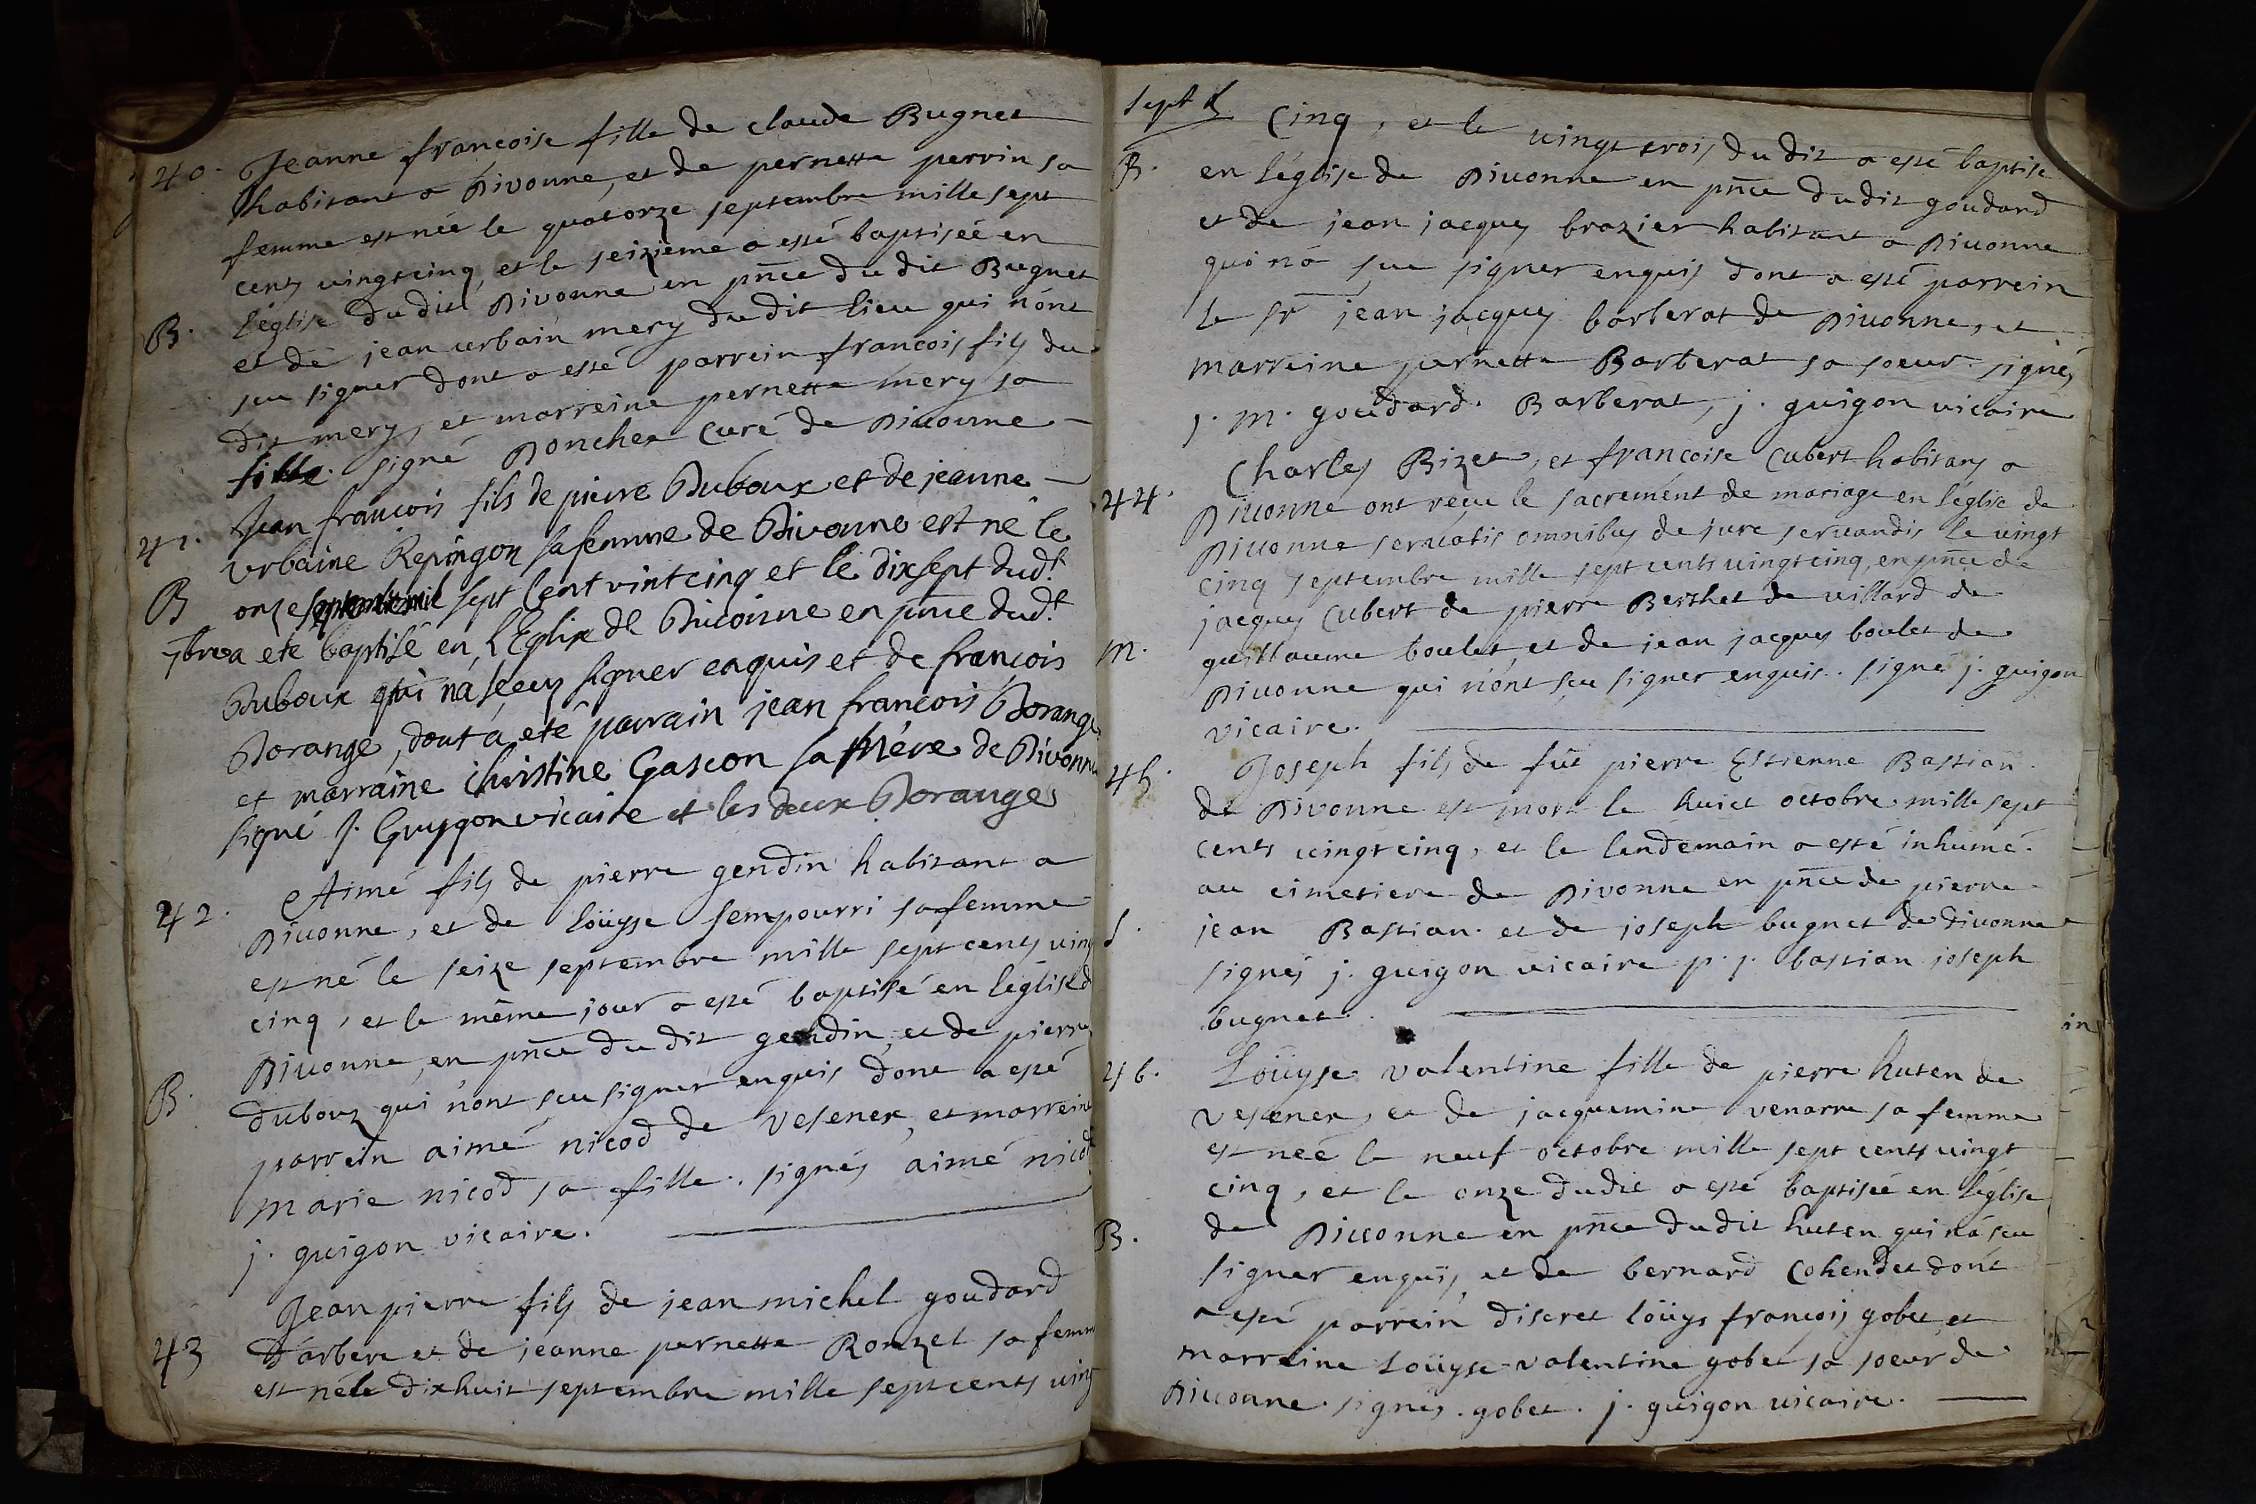 40. Jeanne francoise fille de claude Bugnet
habitant a Divonne, et de pernette perrin sa
femme est née le quatorze septembre mille sept
cents vingtcinq, et le seizième a esté baptisée en
B. l'église du dit Divonne en pñce du dit Bugnet
et de jean urbain mery du dit lieu qui n'ont
sçu signer dont a esté parrein francois fils du
dit mery, et marreine pernette mery sa
fille. signé Ponchex curé de Divonne
41. Jean francois fils de pierre Duboux et de jeanne
urbaine Repingon sa femme de Divonne est né le
B onze sept cent vintcinq et le dixsept dud.t
7bre a eté baptisé en L'Eglise de Divonne en pnce dud.t
Duboux qui na sçeu signer enquis et de françois
Dorange, dont a eté parrain jean francois Dorange
et marraine christine Gascon sa Mére de Divonne
signé J. Guygon vicaire et les deux Doranges
42. Aimé fils de pierre gendin habitant a
Divonne, et de loüyse sempourri sa femme
est né le seize septembre mille sept cents ving
cinq, et le même jour a esté baptisé en l'église d
Divonne, en pñce du dit gendin, et de pierre
B. dubouz qui n'ont sçu signer enquis dont a esté
parrein aimé nicod de vesenex, et marreine
marie nicod sa fille. signés aimé nicod
j. guigon vicaire.
Jean pierre fils de jean michel goudard
43 d'arbere et de jeanne pernette Rouzet sa femm
est né le dixhuit septembre mille sept cents ving
sept
cinq, et le vingt trois du dit a esté baptise
B. en l'église de Divonne en pñce du dit goudard
et de jean jacques brazier habitant a Divonne
qui n'a sçu signer enquis dont a esté parrein
le sr jean jacques barberat de Divonne, et
marreine pernette Barberat sa soeur. signés
j. m. goudard. Barberat, j. guigon vicaire
Charles Bizet, et francoise Cubert habitans a
44. Divonne ont reçu le sacrement de mariage en l'église de
Divonne servatis omnibus de jure servandis le vingt
cinq septembre mille sept cents vingtcinq, en pñce de
jacques Cubert de pierre Berthet de villard de
m. guillaume boulet, et de jean jacques boulet de
Divonne qui n'ont sçu signer enquis. signé j. guigon
vicaire.
45. Joseph fils de fût pierre Estienne Bastian
de Divonne est mort le huict octobre mille sept
cents vingtcinq, et le lendemain a esté inhumé
au cimetiere de Divonne en pñce de pierre
S. jean Bastian et de joseph bugnet de divonne
signés j. guigon vicaire p. j. bastian joseph
bugnet.
46. Loüyse valentine fille de pierre huten de
vesenex, et de jacquemine venarre sa femme
est neé le neuf octobre mille sept cents vingt
cinq, et le onze dudit a esté baptisée en l'église
B. de Divonne en pñce du dit huten qui n'a sçu
signer enquis, et de bernard Cohendet dont
a esté parrein discret loüys françois gobet, et
marreine Loüyse valentine gobet sa soeur de
Divonne. signés. gobet. j. guigon vicaire.
in